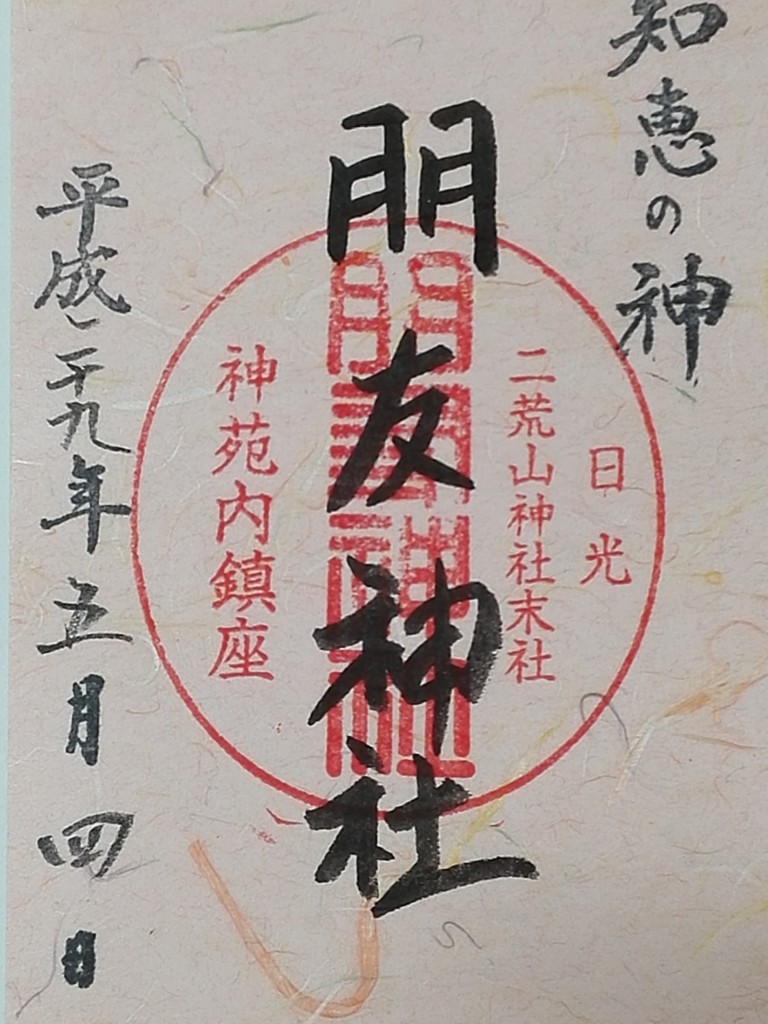 知恵の神
日光
二荒山神社末社
朋友神社
神苑内鎮座
平成二十九年五月四日